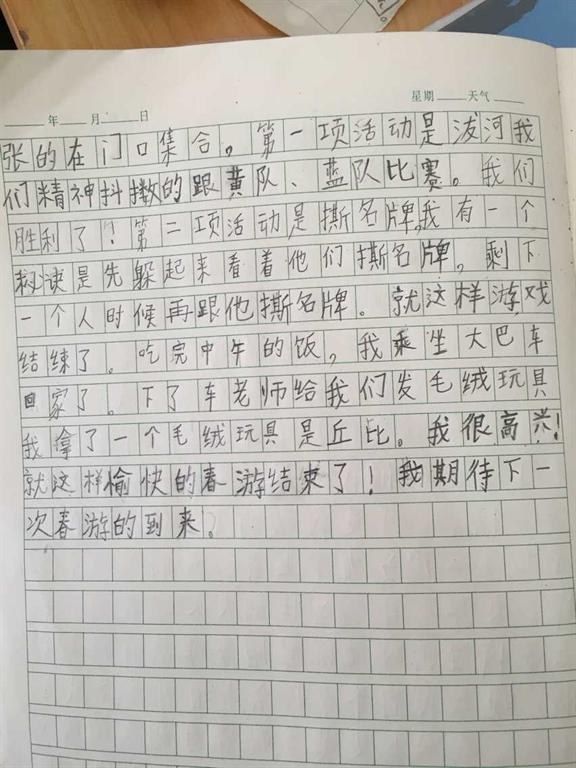 年 月 日 星期 天气
张的在门口集合，第一项活动是泼河我
们精神抖擞的跟黄队、蓝队比赛。我们
胜利了！第二项活动是撕名牌，我有一个
秘诀是先躲起来看着他们撕名牌，剩下
一个人时候再跟他撕名牌。就这样游戏
结练了。吃完中午的饭，我乘坐大巴车
回家了。下了车老师给我们发毛绒玩具
我拿了一个毛绒玩具是丘比。我很高兴！
就这样愉快的春游结束了！我期待下一
次春游的到来。